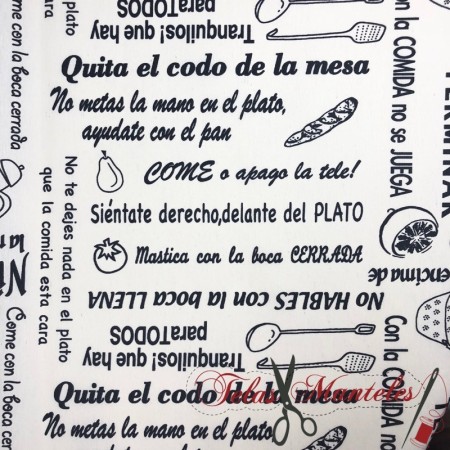 paraTODOS
Tranquilos! que hay
Quita el codo de la mesa
No metas la mano en el plato,
ayudate con el pan
COME o apago la tele!
Siéntate derecho,delante del PLATO
Mastica con la boca CERRADA
No HABLES con la boca LLENA
Tranquilos! que hay
paraTODOS
Quita el codo de la mesa
No metas la mano en el plato
ayudate con el pan
Come con la boca cerrada
plato
cara
No te dejes nada en el plato
que la comida esta cara
Come con la boca cerr
la
Con la COMIDA no se JUEGA
TERMINAR
encima de
Con la COMIDA no
Telas Manteles